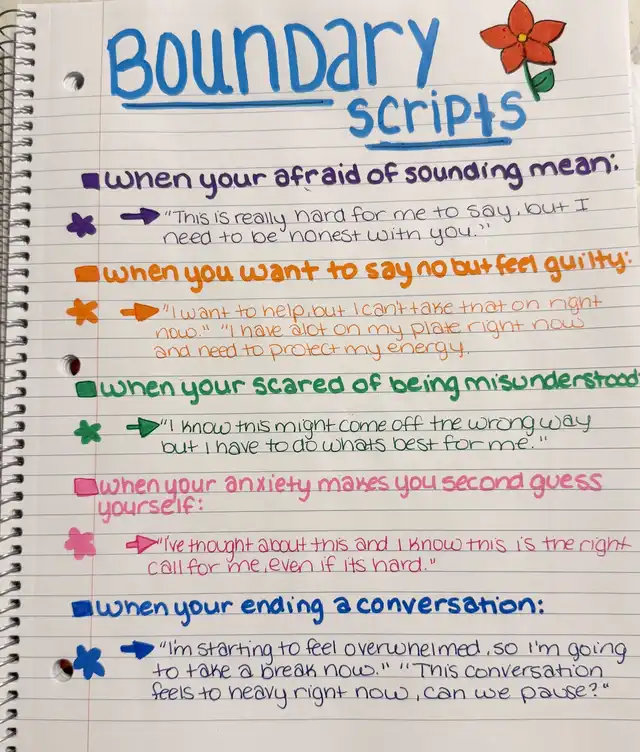 Boundary
scripts
when your afraid of sounding mean:
"This is really hard for me to say, but I
need to be honest with you."
when you want to say no but feel guilty:
"I want to help, but I can't take that on right
now." "I have alot on my plate right now
and need to protect my energy.
when your scared of being misunderstood:
"I know this might come off the wrong way
but I have to do whats best for me."
when your anxiety makes you second guess
yourself:
"I've thought about this and I know this is the right
call for me, even if its hard."
when your ending a conversation:
"I'm starting to feel overwhelmed, so I'm going
to take a break now." "This conversation
feels to heavy right now, can we pause?"